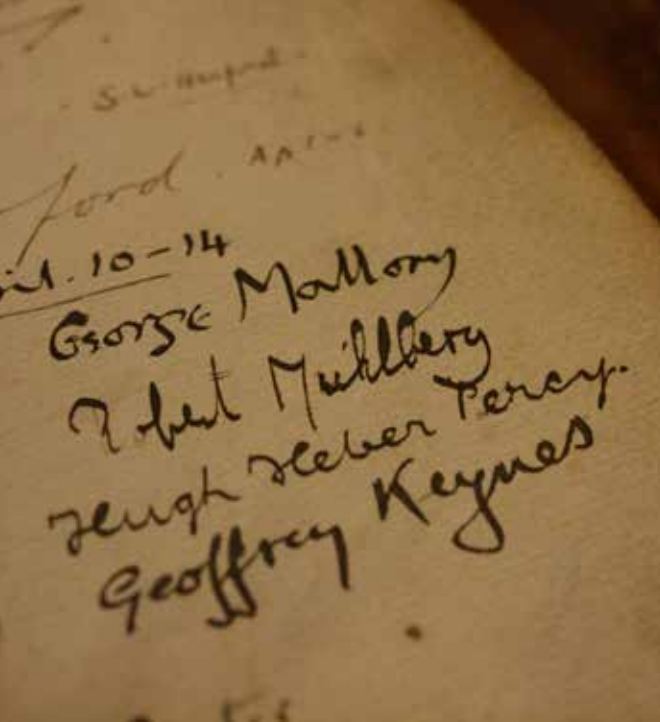 ford
10-14
George Mallory
Robert Mühlberg
Hugh Heber Percy.
Geoffrey Keynes